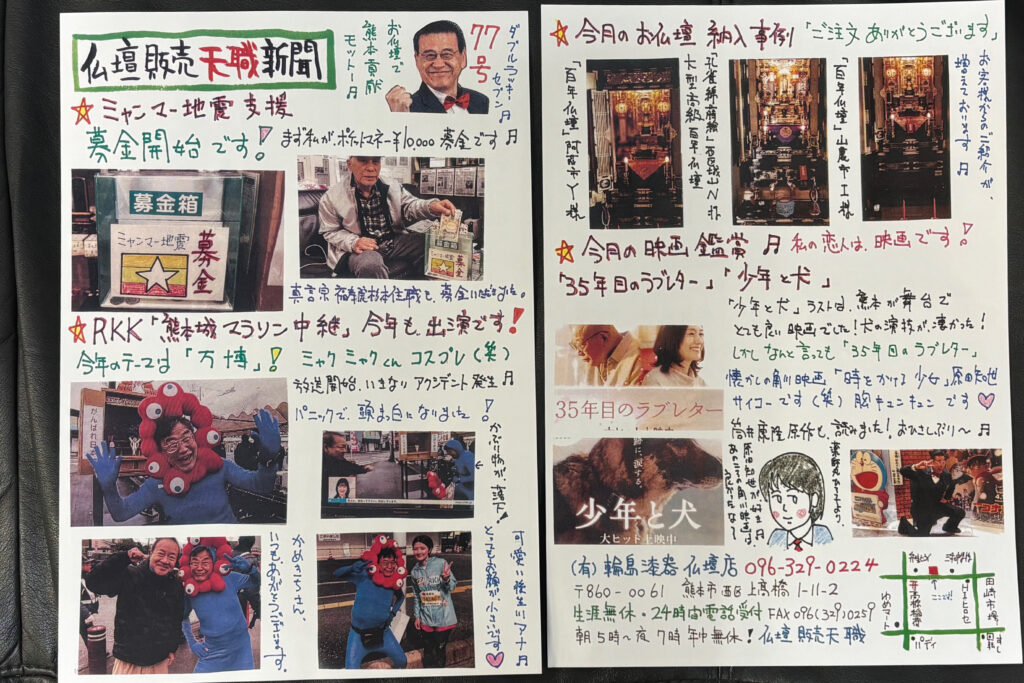 仏壇販売天職新聞
77号
ダブルラッキーセブン♬
お仏壇で
熊本貢献
モットー♬
ミャンマー地震支援
募金開始です!
まず私が、ポケットマネー¥10,000募金です♬
募金箱
ミャンマー地震
募金
募金箱
ミャンマー地震
募金
RKK「熊本城マラソン中継」今年も、出演です!
今年のテーマは「万博」! ミャクミャクくんコスプレ(笑)
放送開始、いきなりアクシデント発生♬
パニックで、頭まっ白になりました!
かぶり物が、落下!
がんばれ
いつも、ありがとうございます。
可愛い後生川アナ♬
とってもお顔が小さいです
今月のお仏壇納入事例「ご注文ありがとうございます」
お客様からのご紹介が、
増えております♬
大型高級百年仏壇
「百年仏壇」阿蘇市Y様
「百年仏壇」山鹿市I様
今月の映画鑑賞♬ 私の恋人は、映画です!
「35年目のラブレター」「少年と犬」
「少年と犬」ラストは、熊本が舞台で
とても良い映画でした!犬の演技が、凄かった!
しかしなんと言っても「35年目のラブレター」
懐かしの角川映画「時をかける少女」原田知世
サイコーです(笑)胸キュンキュンです
筒井康隆原作も、読みました!おひさしぶり〜♬
35年目のラブレター
大ヒット上映中
に、涙する。
少年と犬
大ヒット上映中
原田知世が、好き♬
(有)輪島漆器仏壇店 096-329-0224
〒860-0061 熊本市西区上高橋1-11-2
生涯無休・24時間電話受付 FAX 096(329)0259
朝5時〜夜7時 年中無休!仏壇販売天職
田崎市場
ゆめマート
高橋稲荷
ここです!